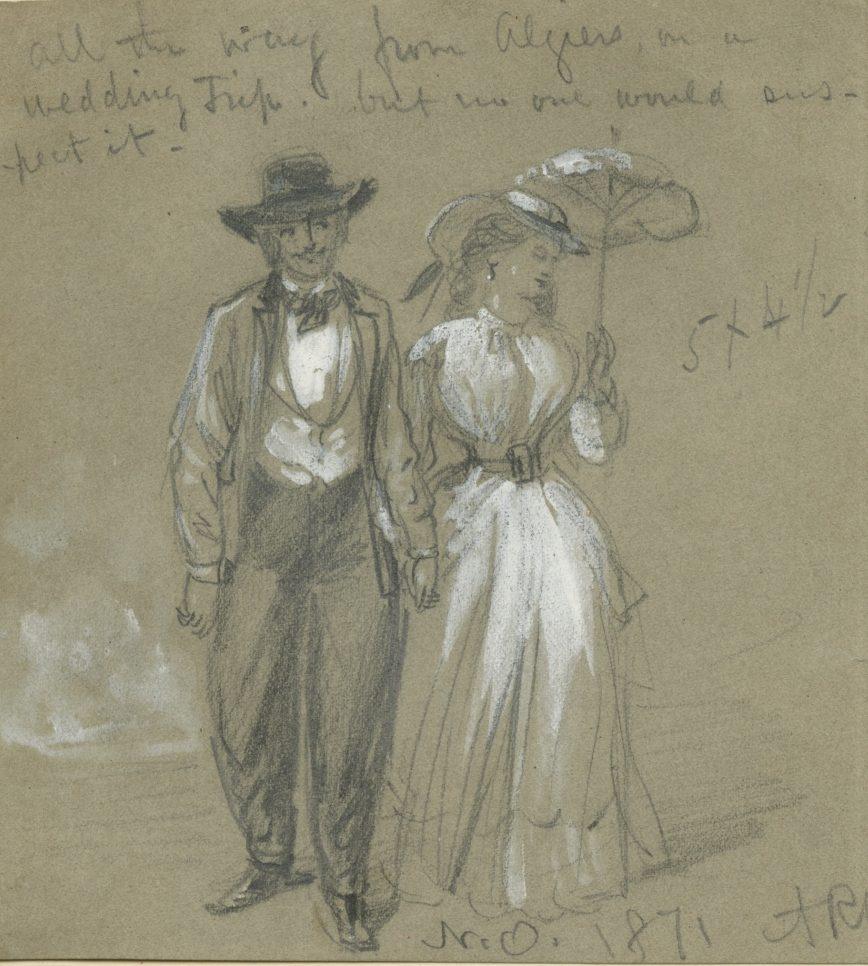 all the way from Algiers, on a
wedding Trip. but no one would sus-
pect it -
5 x 4 1/2
N.O. 1871 ARW